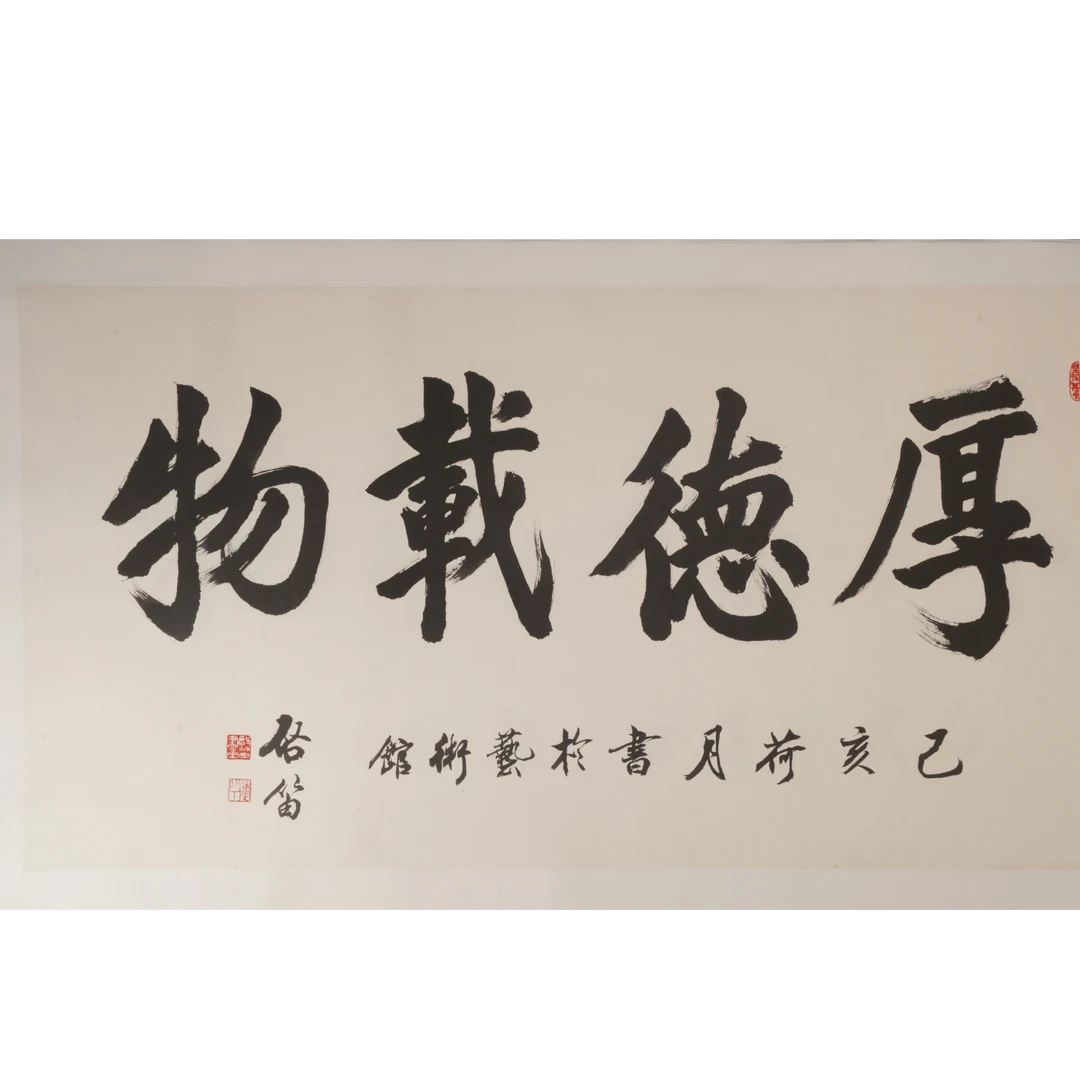 厚德載物
己亥荷月書於藝術館
启笛